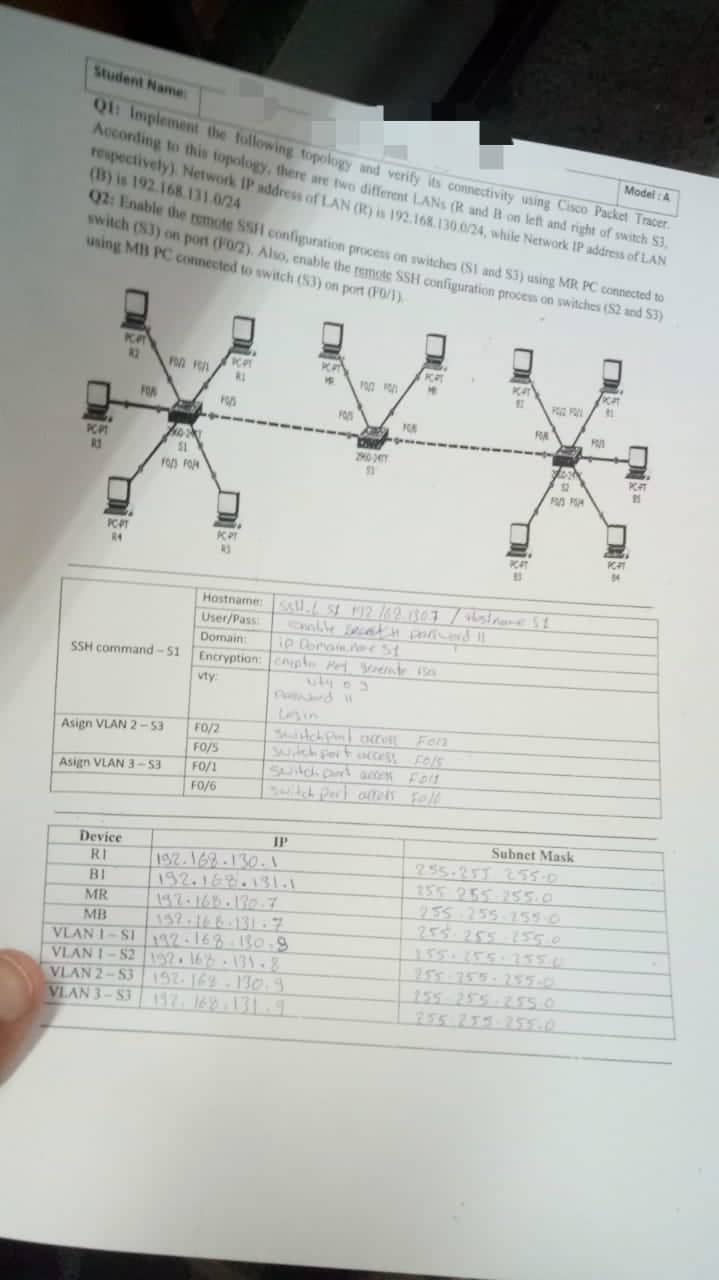 Student Name:
Model : A
Q1: Implement the following topology and verify its connectivity using Cisco Packet Tracer.
According to this topology, there are two different LANs (R and B on left and right of switch S3,
respectively). Network IP address of LAN (R) is 192.168.130.0/24, while Network IP address of LAN
(B) is 192.168.131.0/24
Q2: Enable the remote SSH configuration process on switches (S1 and S3) using MR PC connected to
switch (S3) on port (F0/2). Also, enable the remote SSH configuration process on switches (S2 and S3)
using MB PC connected to switch (S3) on port (F0/1).
PC-PT
R2
F0/2 F0/1
PC-PT
R1
F0/6
PC-PT
R3
F0/5
2960-24TT
S1
F0/3 F0/4
PC-PT
R4
PC-PT
R5
PC-PT
MR
F0/2 F0/1
PC-PT
MB
F0/5
F0/6
2960-24TT
S3
PC-PT
B2
F0/2 F0/1
PC-PT
B1
F0/6
F0/5
PC-PT
B5
2960-24TT
S2
F0/3 F0/4
PC-PT
B3
PC-PT
B4
SSH command – S1
Hostname: / Hostname S1
User/Pass: enable password 11
Domain: ip Domain name S1
Encryption: crypto key generate rsa
vty: vty 0 9
Password 11
Login
Asign VLAN 2 – S3 F0/2 switchport access F0/2
F0/5 switchport access F0/5
Asign VLAN 3 – S3 F0/1 switchport access F0/1
F0/6 switchport access F0/6
Device IP Subnet Mask
R1 192.168.130.1 255.255.255.0
B1 192.168.131.1 255.255.255.0
MR 192.168.130.7 255.255.255.0
MB 192.168.131.7 255.255.255.0
VLAN 1 – S1 192.168.130.8 255.255.255.0
VLAN 1 – S2 192.168.131.8 255.255.255.0
VLAN 2 – S3 192.168.130.9 255.255.255.0
VLAN 3 – S3 192.168.131.9 255.255.255.0